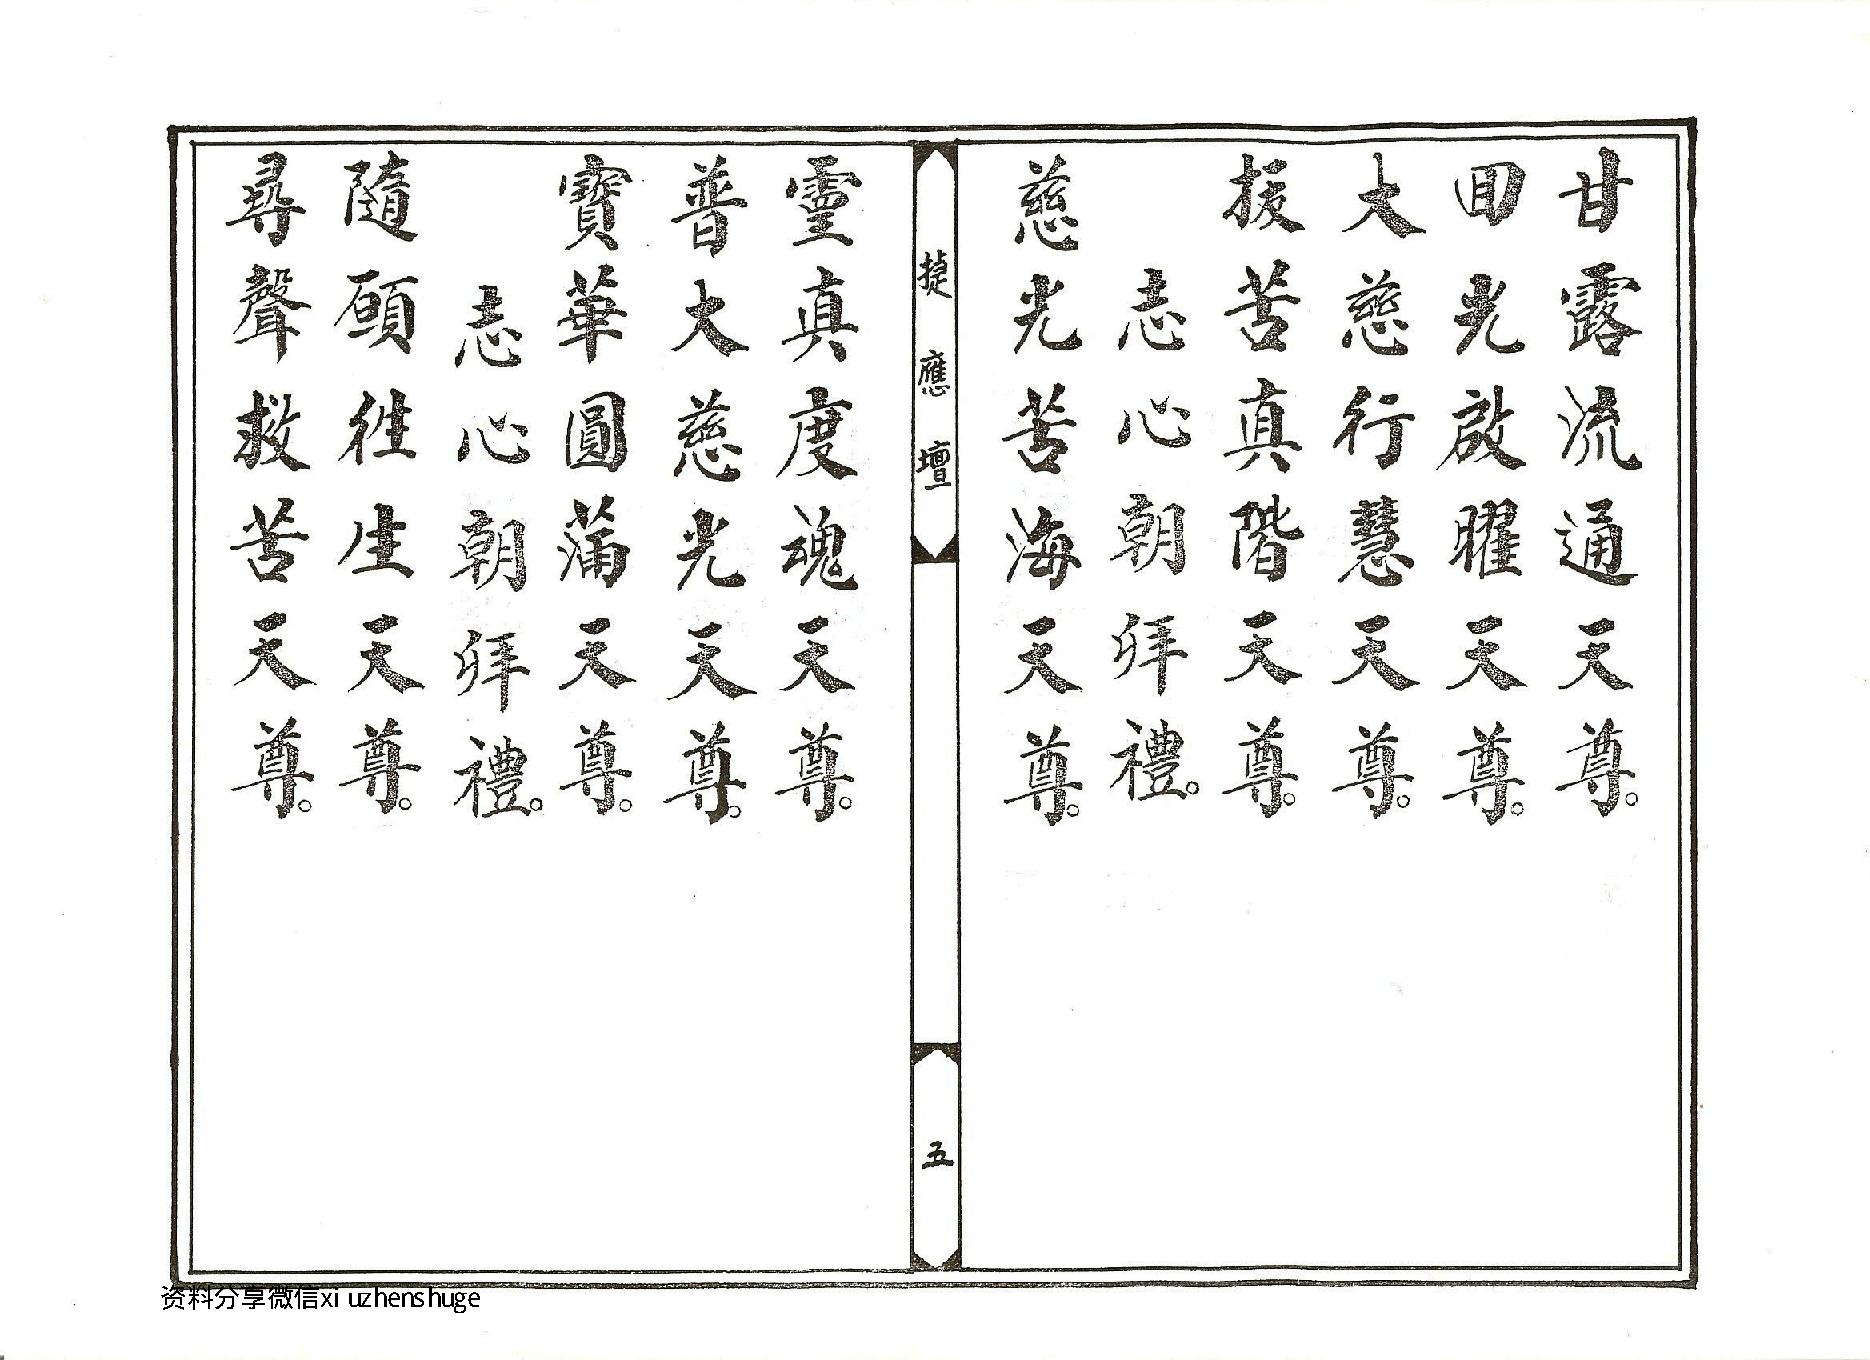 甘露流通天尊。
回光啟曜天尊。
大慈行慧天尊。
拔苦真階天尊。
志心朝拜禮。
慈光苦海天尊。
捷應壇
五
靈真度魂天尊。
普大慈光天尊。
寶華圓蒲天尊。
志心朝拜禮。
隨願往生天尊。
尋聲救苦天尊。
资料分享微信xiuzhenshuge